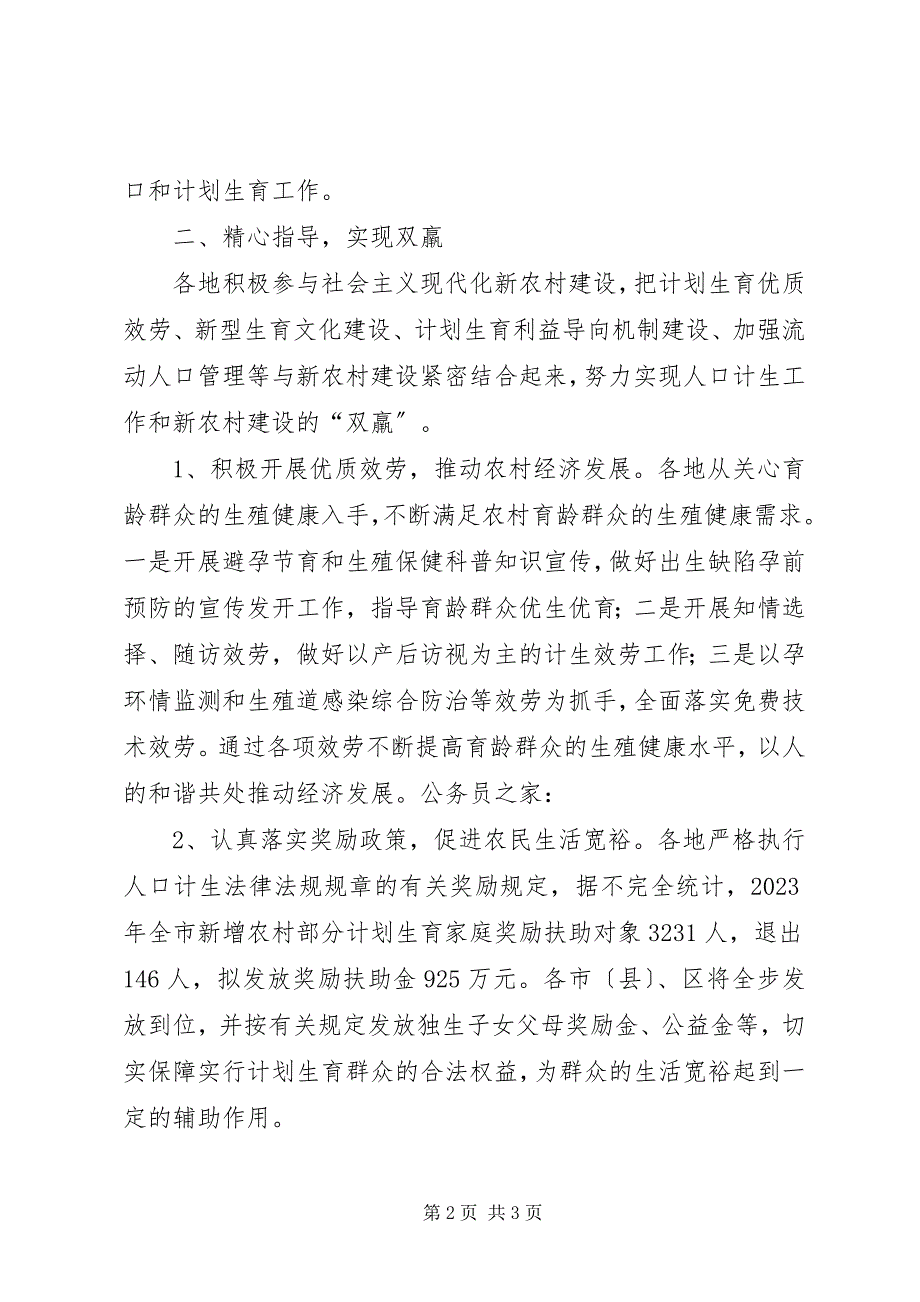 口和计划生育工作。
二、精心指导，实现双赢
各地积极参与社会主义现代化新农村建设，把计划生育优质
效劳、新型生育文化建设、计划生育利益导向机制建设、加强流
动人口管理等与新农村建设紧密结合起来，努力实现人口计生工
作和新农村建设的“双赢〞。
1、积极开展优质效劳，推动农村经济发展。各地从关心育
龄群众的生殖健康入手，不断满足农村育龄群众的生殖健康需求。
一是开展避孕节育和生殖保健科普知识宣传，做好出生缺陷孕前
预防的宣传发开工作，指导育龄群众优生优育；二是开展知情选
择、随访效劳，做好以产后访视为主的计生效劳工作；三是以孕
环情监测和生殖道感染综合防治等效劳为抓手，全面落实免费技
术效劳。通过各项效劳不断提高育龄群众的生殖健康水平，以人
的和谐共处推动经济发展。公务员之家：
2、认真落实奖励政策，促进农民生活宽裕。各地严格执行
人口计生法律法规规章的有关奖励规定，据不完全统计，2023
年全市新增农村部分计划生育家庭奖励扶助对象 3231 人，退出
146 人，拟发放奖励扶助金 925 万元。各市〔县〕、区将全步发
放到位，并按有关规定发放独生子女父母奖励金、公益金等，切
实保障实行计划生育群众的合法权益，为群众的生活宽裕起到一
定的辅助作用。
第 2 页 共 3 页